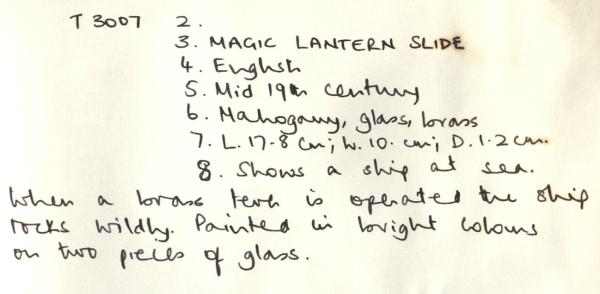 T 3007 2.
3. MAGIC LANTERN SLIDE
4. English
5. Mid 19th century
6. Mahogany, glass, brass
7. L. 17.8 cm; W. 10. cm; D. 1.2 cm.
8. Shows a ship at sea.
When a brass is operated the ship
rocks wildly. Painted in bright colours
on two pieces of glass.